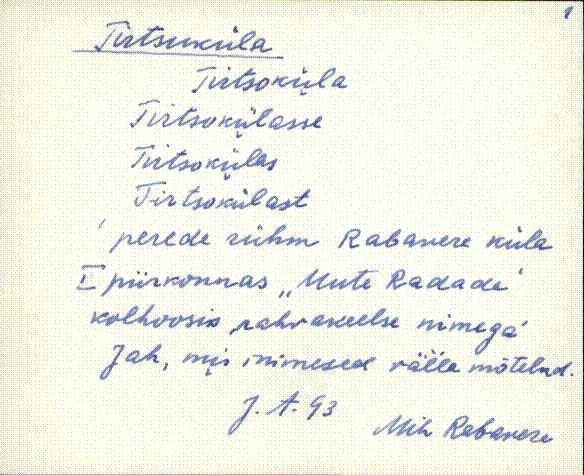 1
Tirtsuküla
Tirtsoküla
Tirtsokülasse
Tirtsokülas
Tirtsokülast
perede rühm Rabavere küla
I piirkonnas „Uute Radade"
kolhoosis rahvakeelse nimega
Jah, mis inimesed välla mõtelnd.
J. A. 93
Mih Rabavere